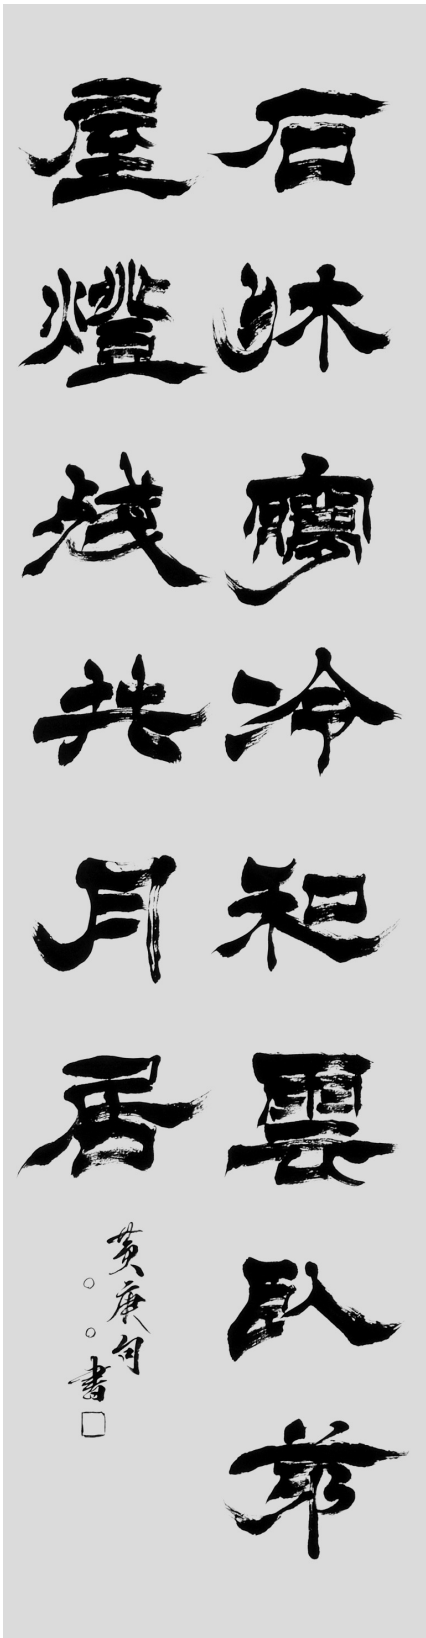 石床寒冷和雲臥茅
屋燈殘共月居
黄庚句
○○書